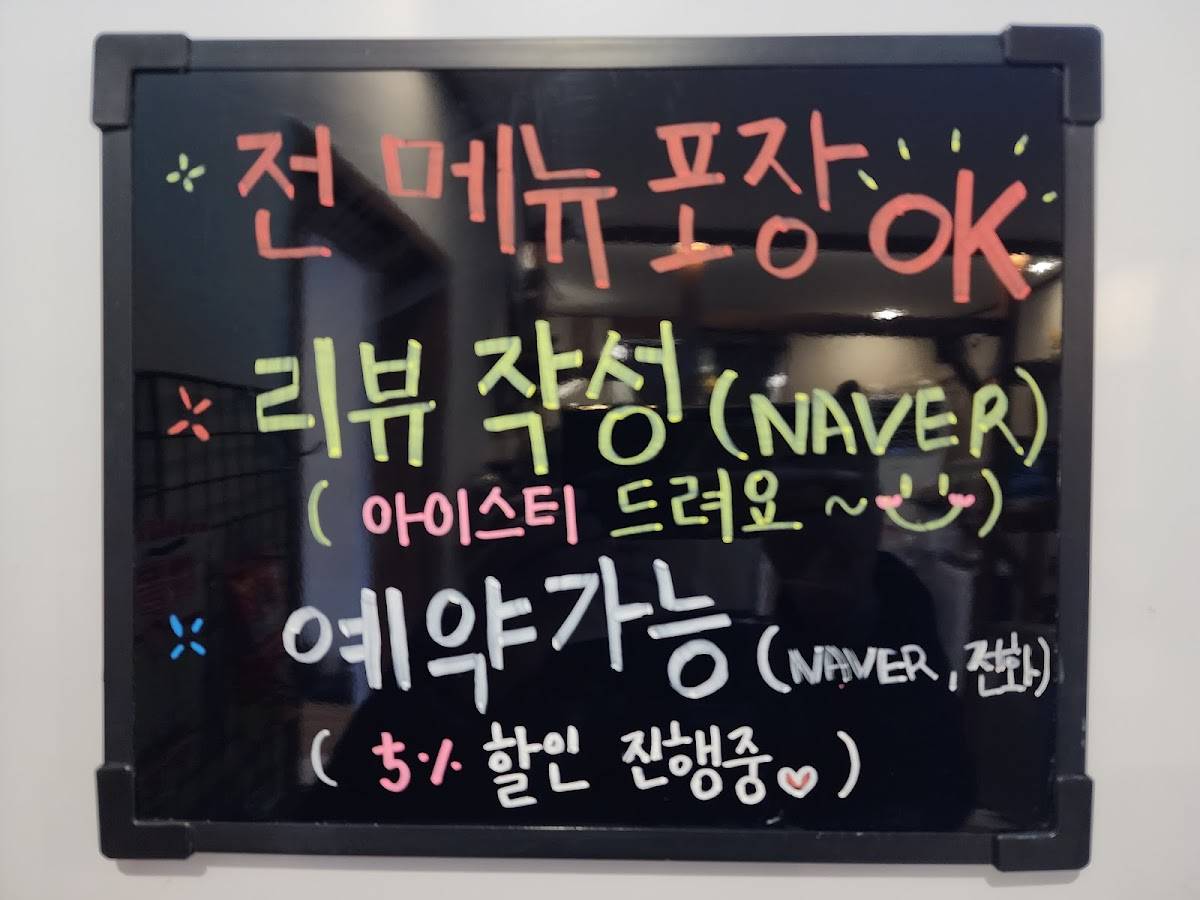 전 메뉴 포장 OK
리뷰 작성 (NAVER)
( 아이스티 드려요 ~ )
예약가능 (NAVER, 전화)
( 5% 할인 진행중♡ )